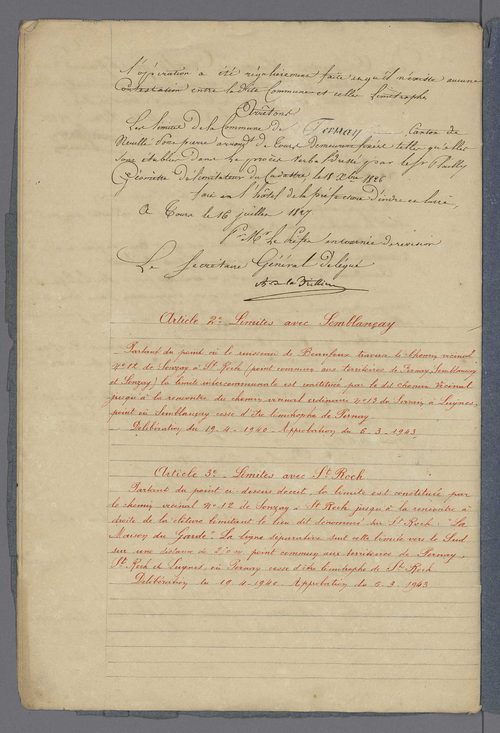 l'opération a été régulièrement faite en qu'il n'existe aucune
Contestation entre la dite Commune et celles limitrophe
Arrêtons
Les limites de la Commune de Pernay Canton de
Neuillé pont pierre arrondt de Tours demeurent fixées telles qu'elles
sont établies dans le procès verbal dressé par le Sr
Géomètre délimitateur du Cadastre, le 18 Xbre 1826
fait en l'hôtel de la préfecture d'indre et loire,
A Tours le 16 juillet 1827
Pr Mr Le Préfet en tournée de revision
Le Secrétaire Général Délégué
Article 2e Limites avec Semblançay
Partant du point où le ruisseau de traverse le Chemin vicinal
No 12 de Sonzay à St Roch (point commun aux territoires de Pernay, Semblançay
et Sonzay) la limite intercommunale est constituée par le dit chemin vicinal
jusqu'à la rencontre du chemin vicinal ordinaire No 13 de à Luynes,
point où Semblançay cesse d'être limitrophe de Pernay
Délibération du 19-4-1940 - Approbation du 6-3-1943
Article 3e - Limites avec St Roch
Partant du point ci dessus décrit, la limite est constituée par
le chemin vicinal No 12 de Sonzay à St Roch jusqu'à la rencontre à
droite de la clôture limitant le lieu dit dénommé sur St Roch: "La
Maison du Garde". La ligne séparative suit cette limite vers le Sud
sur une distance de m point commun aux territoires de Pernay,
St Roch et Luynes où Pernay cesse d'être limitrophe de St Roch
Délibération du 19-4-1940 - Approbation du 6-3-1943